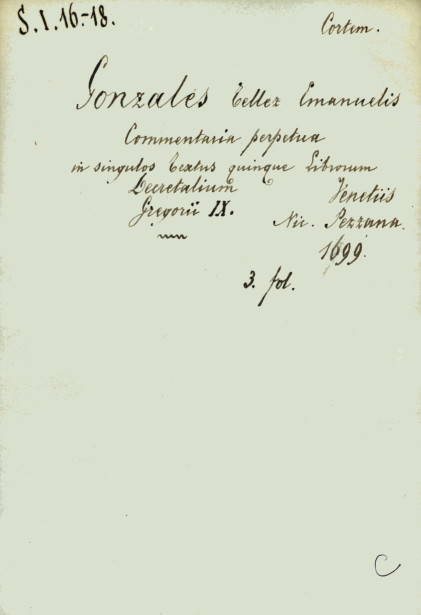 S. I. 16.-18.
Cortem.
Gonzales Tellez Emanuelis
Commentaria perpetua
in singulos Textus quinque Librorum
Decretalium Venetiis
Gregorii IX. Nic. Pezzana.
1699.
3. fol.
C